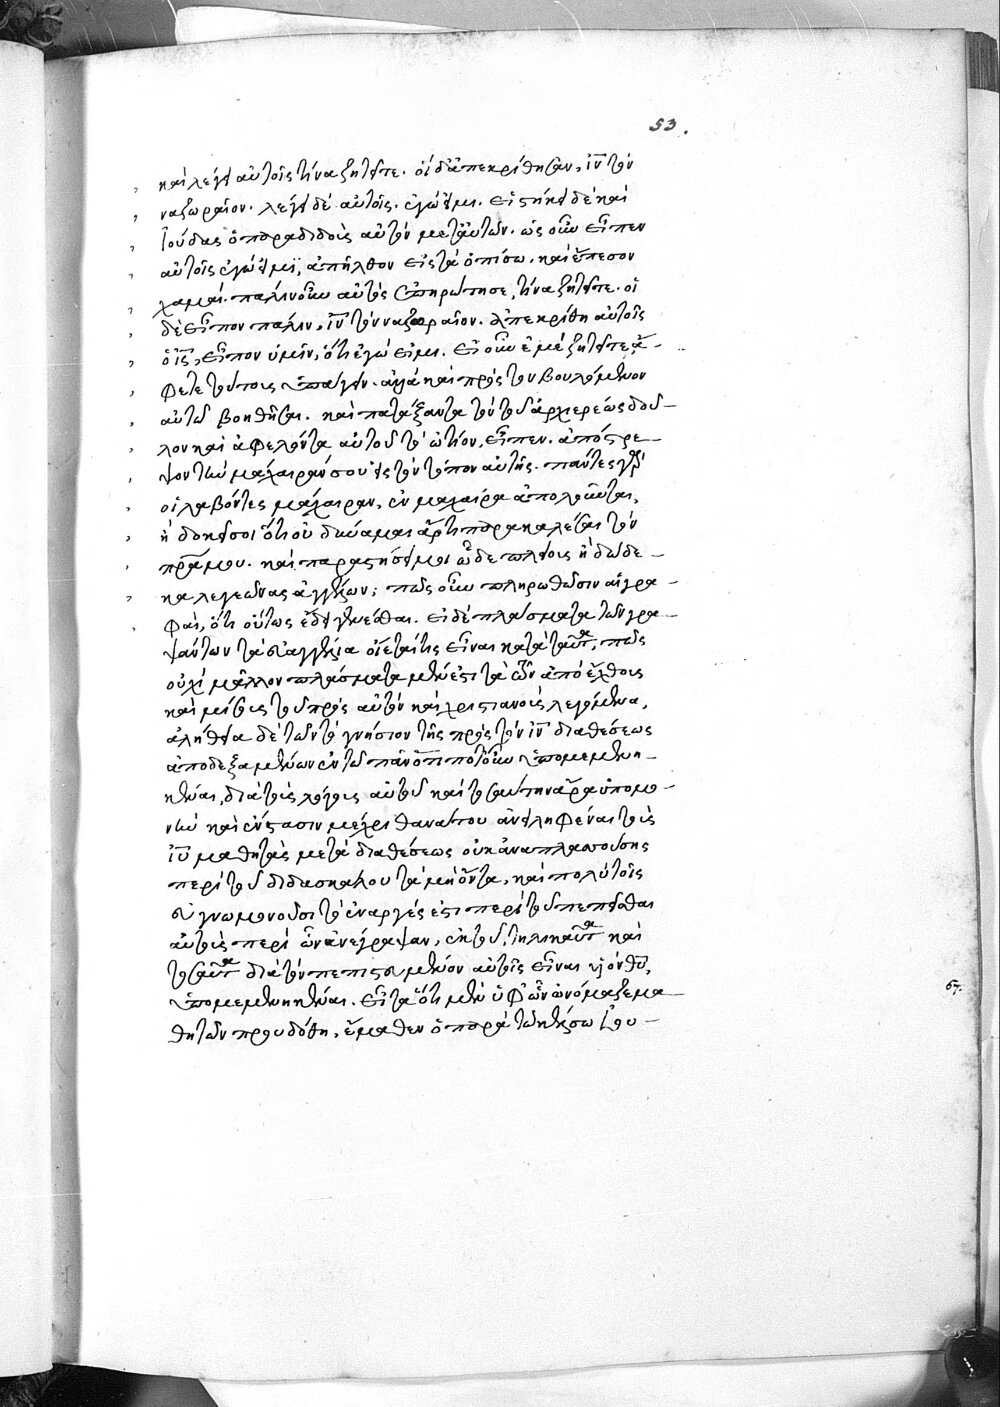 53.
καὶ λέγει αὐτοῖς τίνα ζητεῖτε. οἱ δ' ἀπεκρίθησαν, ἰν τὸν
ναζωραῖον. λέγει δὲ αὐτοῖς. ἐγώ εἰμι. εἱστήκει δὲ καὶ
Ἰούδας ὁ παραδιδοὺς αὐτὸν μετ' αὐτῶν. ὡς οὖν εἶπεν
αὐτοῖς ἐγώ εἰμι, ἀπῆλθον εἰς τὰ ὀπίσω. καὶ ἔπεσον
χαμαί. πάλιν οὖν αὐτοὺς ἐπηρώτησε, τίνα ζητεῖτε. οἱ
δὲ εἶπον πάλιν, ἰν τὸν ναζωραῖον. ἀπεκρίθη αὐτοῖς
ὁ ἰς, εἶπον ὑμῖν, ὅτι ἐγώ εἰμι. εἰ οὖν ἐμὲ ζητεῖτε, ἄ-
φετε τούτους ὑπάγειν. ἀλλὰ καὶ πρὸς τὸν βουλόμενον
αὐτῷ βοηθῆσαι. καὶ πατάξαντα τὸν τοῦ ἀρχιερέως δοῦ-
λον καὶ ἀφελόντα αὐτοῦ τὸ ὠτίον, εἶπεν. ἀπόστρε-
ψον τὴν μάχαιράν σου εἰς τὸν τόπον αὐτῆς. πάντες γὰρ
οἱ λαβόντες μάχαιραν, ἐν μαχαίρα ἀπολοῦνται,
ἢ δοκεῖ σοι ὅτι οὐ δύναμαι ἄρτι παρακαλέσαι τὸν
πρα μου. καὶ παραστήσει μοι ὧδε πλείους ἢ δώδε-
κα λεγεῶνας ἀγγέλων; πῶς οὖν πληρωθῶσιν αἱ γρα-
φαὶ, ὅτι οὕτως ἔδει γενέσθαι. εἰ δὲ πλάσματα τῶν γρα-
ψάντων τὰ εὐαγγέλια οἴεταί τις εἶναι κατὰ ταῦτα, πῶς
οὐχὶ μᾶλλον πλάσματα μὲν ἐστι τὰ ὧν ἀπὸ ἔχθους
καὶ μίσους τοῦ πρὸς αὐτὸν καὶ χριστιανοὺς λεγόμενα,
ἀλήθεια δὲ τῶν τὸ γνήσιον τῆς πρὸς τὸν ἰν διαθέσεως
ἀποδεξαμένων ἐν τῷ πᾶν ὅτι ποτοῦν ὑπομεμενη-
κέναι, διὰ τοὺς λόγους αὐτοῦ
καὶ ἔνστασιν μέχρι θανάτου ἀνειληφέναι τοὺς
ἰυ μαθητὰς μετὰ διαθέσεως οὐκ ἀναπλαττούσης
περὶ τοῦ διδασκάλου τὰ μὴ ὄντα, καὶ πολὺ τοῖς
εὐγνωμονοῦσι τὸ ἐναργές ἐστι περὶ τοῦ πεπεῖσθαι
αὐτοὺς περὶ ὧν ἀνέγραψαν, ἐκ τοῦ, τηλικαῦτα καὶ
τοσαῦτα διὰ τὸν πεπιστευμένον αὐτοῖς εἶναι υἱὸν θυ,
ὑπομεμενηκέναι. εἶτα ὅτι μὲν ὑφ' ὧν ὠνόμαζε μα-
θητῶν προυδόθη, ἔμαθεν ὁ παρὰ τῷ κέλσω Ἰου-
67.